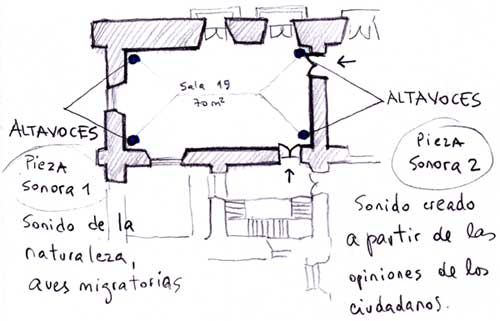 Sala 19
70 m²
ALTAVOCES
ALTAVOCES
PiEZA
Sonora 1
Sonido de la
naturaleza,
aves migratorias
PiEZA
Sonora 2
Sonido creado
a partir de las
opiniones de los
ciudadanos.